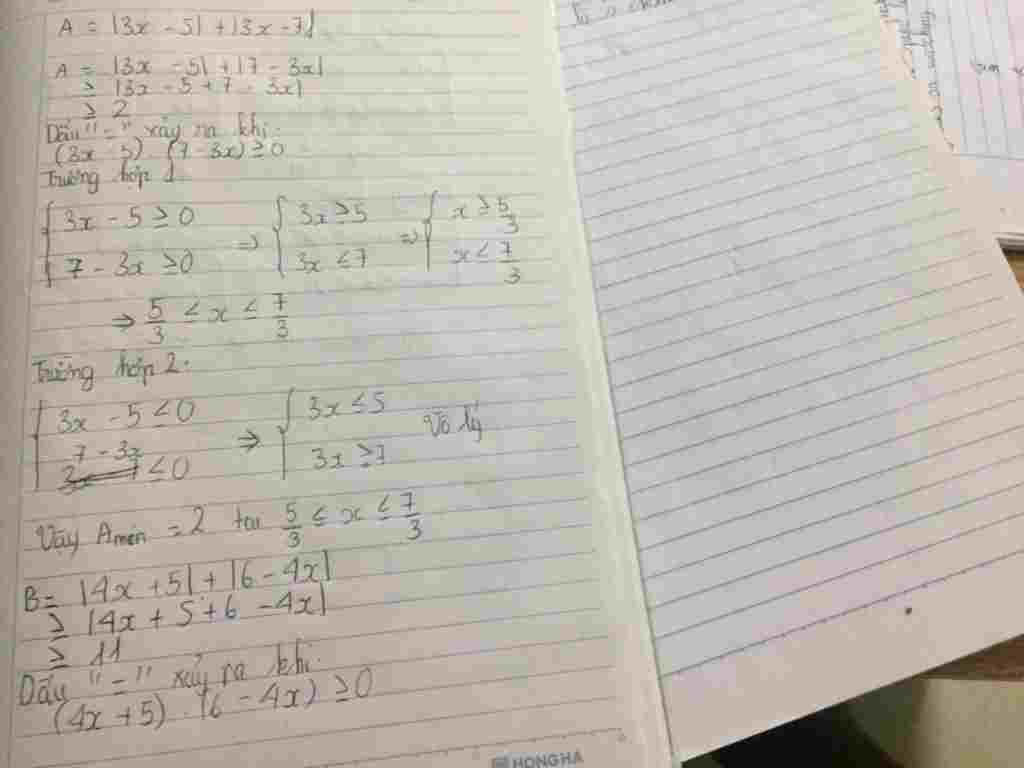 A = |3x - 5| + |3x - 7|
A = |3x - 5| + |7 - 3x|
≥ |3x - 5 + 7 - 3x|
≥ 2
Dấu "=" xảy ra khi:
(3x - 5) (7 - 3x) ≥ 0
Trường hợp 1
{ 3x - 5 ≥ 0 => { 3x ≥ 5 => { x ≥ 5/3
{ 7 - 3x ≥ 0 { 3x ≤ 7 { x ≤ 7/3
=> 5/3 ≤ x ≤ 7/3
Trường hợp 2:
{ 3x - 5 ≤ 0 => { 3x ≤ 5 Vô lý
{ 7 - 3x ≤ 0 { 3x ≥ 7
Vậy Amin = 2 tại 5/3 ≤ x ≤ 7/3
B = |4x + 5| + |6 - 4x|
≥ |4x + 5 + 6 - 4x|
≥ 11
Dấu "=" xảy ra khi:
(4x + 5) . (6 - 4x) ≥ 0
HONGHA